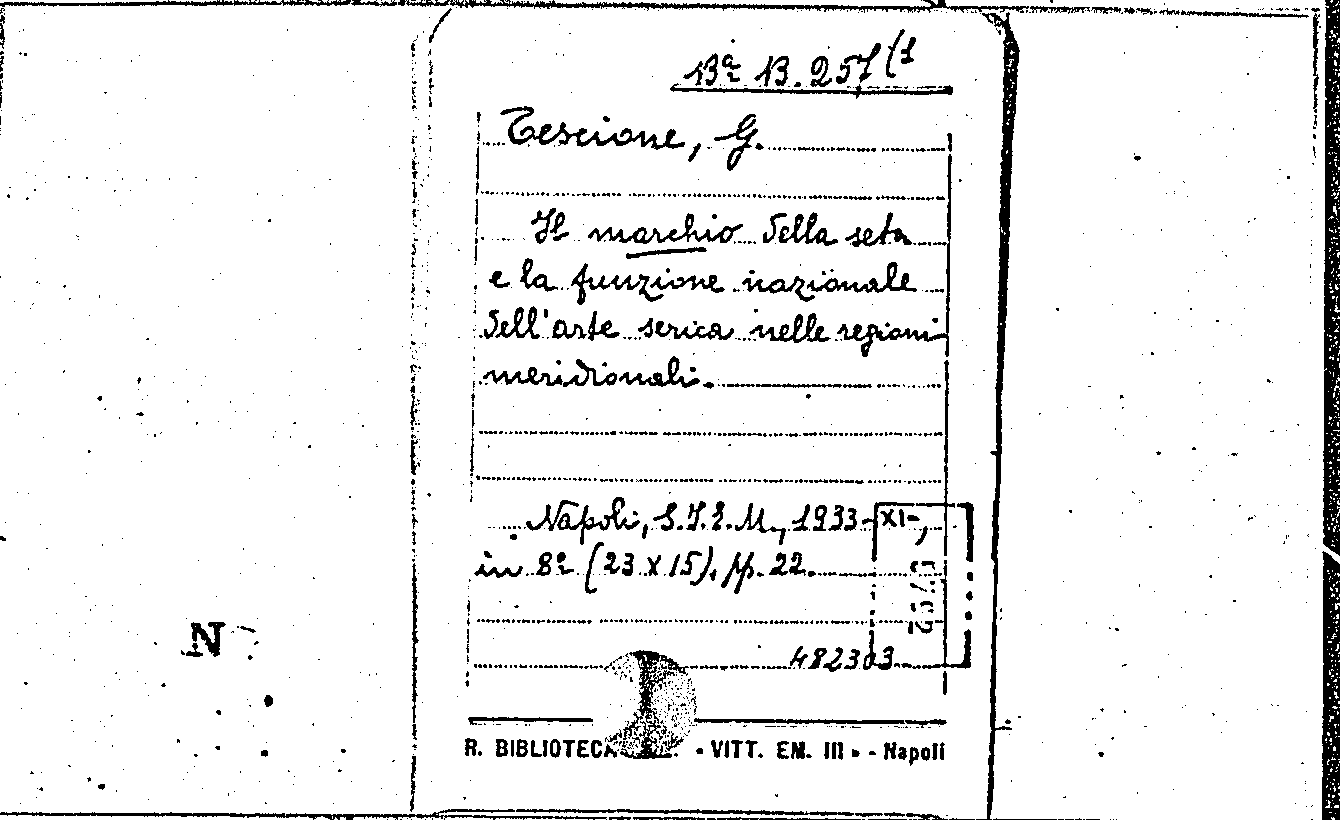 13ª B. 257(1
Tescione, G.
Il marchio della seta
e la funzione nazionale
dell'arte serica nelle regioni
meridionali.
Napoli, S.I.E.M., 1933-XI-,
in 8º (23 x 15), pp. 22.
N
R. BIBLIOTECA « VITT. EM. III » - Napoli